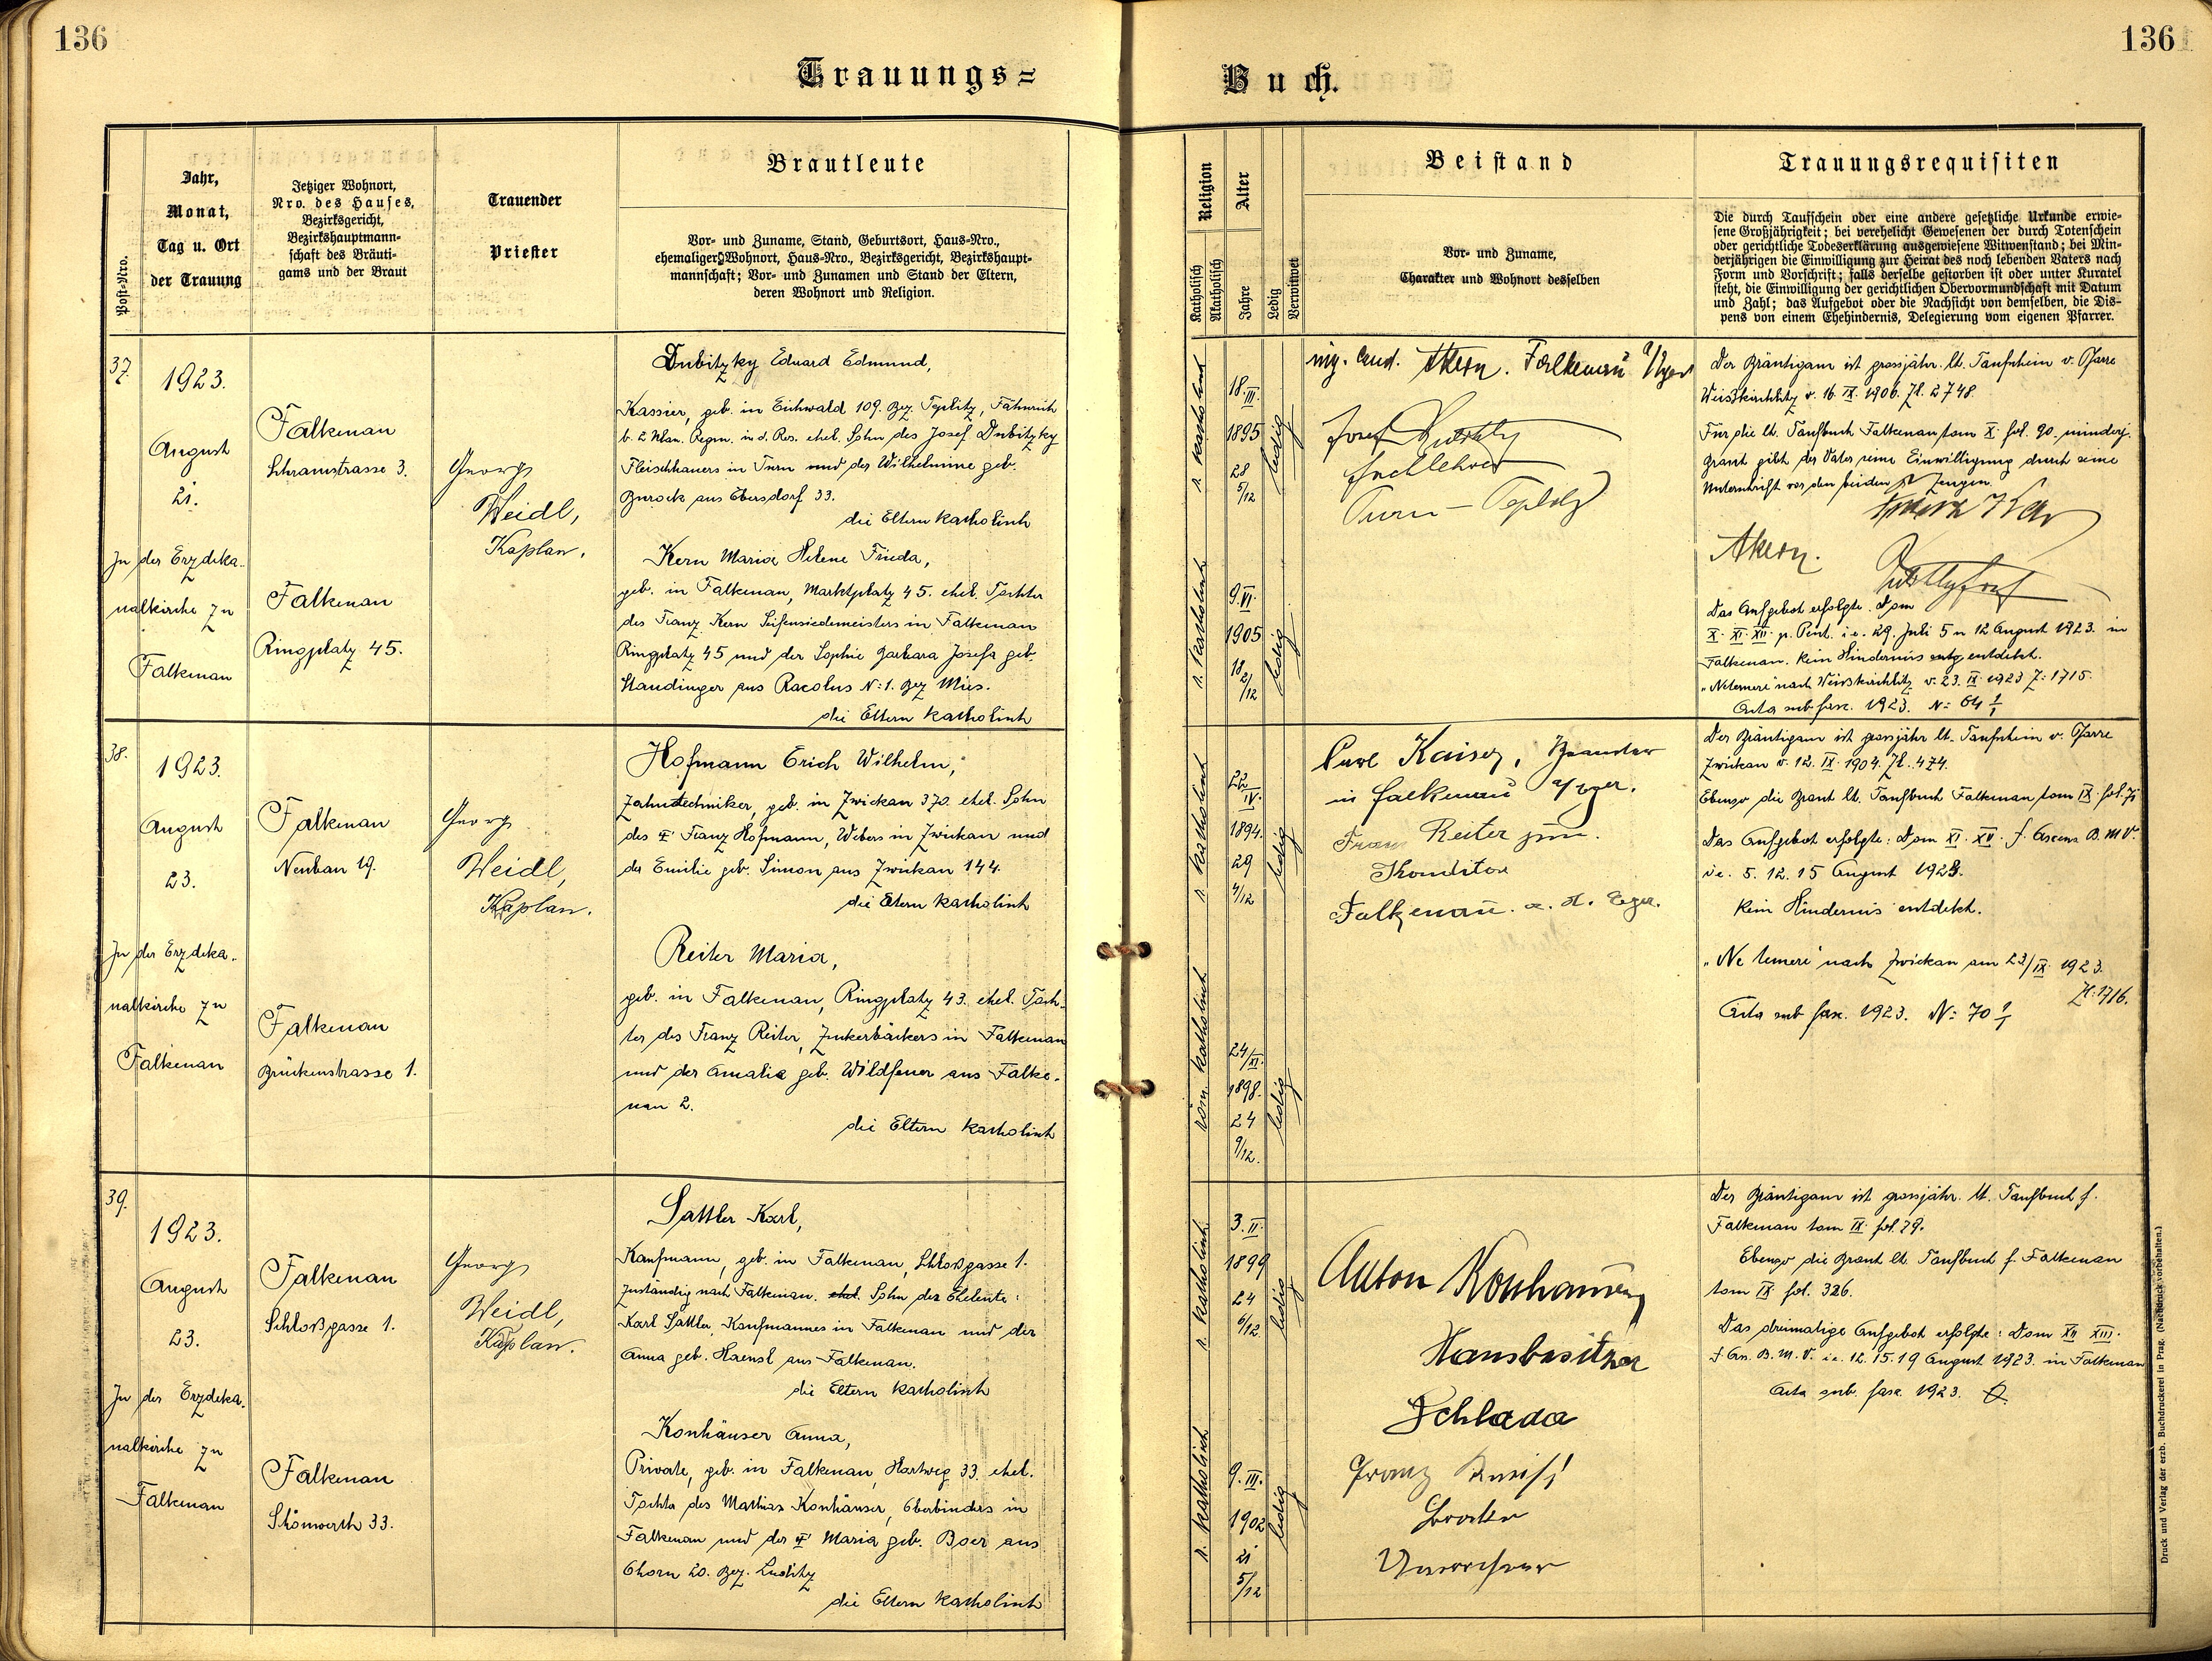 136
136
Trauungs=
Buch.
Post-Nro.
Jahr,
Monat,
Tag u. Ort
der Trauung
Jetziger Wohnort,
Nro. des Hauses,
Bezirksgericht,
Bezirkshauptmann-
schaft des Bräuti-
gams und der Braut
Trauender
Priester
Brautleute
Vor- und Zuname, Stand, Geburtsort, Haus-Nro.,
ehemaliger Wohnort, Haus-Nro., Bezirksgericht, Bezirkshaupt-
mannschaft; Vor- und Zunamen und Stand der Eltern,
deren Wohnort und Religion.
Religion
Katholisch
Akatholisch
Alter
Jahre
Ledig
Verwitwet
Beistand
Vor- und Zuname,
Charakter und Wohnort desselben
Trauungsrequisiten
Die durch Taufschein oder eine andere gesetzliche Urkunde erwie-
sene Großjährigkeit; bei verehelicht Gewesenen der durch Totenschein
oder gerichtliche Todeserklärung ausgewiesene Witwenstand; bei Min-
derjährigen die Einwilligung zur Heirat des noch lebenden Vaters nach
Form und Vorschrift; falls derselbe gestorben ist oder unter Kuratel
steht, die Einwilligung der gerichtlichen Obervormundschaft mit Datum
und Zahl; das Aufgebot oder die Nachsicht von demselben, die Dis-
pens von einem Ehehindernis, Delegierung vom eigenen Pfarrer.
37.
1923.
August
21.
In der Erzdeka-
nalkirche zu
Falkenau
Falkenau
Schramstrasse 3.
Falkenau
Ringplatz 45.
Georg
Weidl,
Kaplan.
Dubitzky Eduard Edmund,
Kassier, geb. in Eichwald 109. Bez. Teplitz, Fähnrich
b. 2 Ulan. Regm. in d. Res. ehel. Sohn des Josef Dubitzky
Fleischhauers in Turn und der Wilhelmine geb.
aus Ebersdorf 33.
die Eltern katholisch
Kern Maria Helene Frieda,
geb. in Falkenau, Marktplatz 45. ehel. Tochter
des Franz Kern Seifensiedemeisters in Falkenau
Ringplatz 45 und der Sophie Barbara Josefa geb.
Staudinger aus Racolus N: 1. Bez Mies.
die Eltern katholisch
r. katholisch
18.
III.
1895
28
5/12
ledig
r. katholisch
9. VI.
1905
18
2/12
ledig
ing. cand. AKern. Falkenau a/Eger
Josef Dubitzky
Turn - Teplitz
Der Bräutigam ist grossjähr. lt. Taufschein v. Pfarre
Weisskirchlitz v. 16. IX. 1906. Zl. 2748.
Für die lt. Taufbuch Falkenau tom X. fol. 90. minderj.
Braut gibt der Vater seine Einwilligung durch seine
Unterschrift vor den beiden Zeugen.
AKern.
Das Aufgebot erfolgte. Dom
X. XI. XII. p. Pent. i. e. 29. Juli 5 u 12 August 1923. in
Falkenau. Kein Hindernis entdekt.
"Netemere" nach Weisskirchlitz v. 23. IX. 1923 Z: 1715.
Acta sub fasc. 1923. N: 64 1/1
38.
1923.
August
23.
In der Erzdeka-
nalkirche zu
Falkenau
Falkenau
Neubau 19.
Falkenau
Brückenstrasse 1.
Georg
Weidl,
Kaplan.
Hofmann Erich Wilhelm,
Zahntechniker, geb. in Zwickau 370. ehel. Sohn
des Franz Hofmann, Webers in Zwickau und
der Emilie geb. Simon aus Zwickau 144.
die Eltern katholisch
Reiter Maria,
geb. in Falkenau, Ringplatz 43. ehel. Toch-
ter des Franz Reiter, Zuckerbäckers in Falkenau
und der Amalie geb. Wildfeuer aus Falke-
nau 2.
die Eltern katholisch
r. katholisch
22
IV.
1894.
29
4/12
ledig
röm. katholisch
24/XI.
1898.
24
9/12.
ledig
Karl Kaiser, Beamter
in Falkenau a/Eger.
Franz Reiter jun.
Konditor
Falkenau. a. d. Eger.
Der Bräutigam ist grossjähr lt. Taufschein v. Pfarre
Zwickau v. 12. IX. 1904. Zl. 474.
Ebenso die Braut lt. Taufbuch Falkenau tom IX. fol. 71
Das Aufgebot erfolgte: Dom XI. XII. f. Ascens B. M V.
i e. 5. 12. 15 August 1923.
Kein Hindernis entdekt.
"Ne temere" nach Zwickau am 23/IX. 1923.
Zl: 1716.
Acta sub fasc. 1923. N: 70 1/1
39.
1923.
August
23.
In der Erzdeka-
nalkirche zu
Falkenau
Falkenau
Schloßgasse 1.
Falkenau
Schönwerth 33.
Georg
Weidl,
Kaplan.
Sattler Karl,
Kaufmann, geb. in Falkenau, Schloßgasse 1.
zuständig nach Falkenau. ehel. Sohn der Eheleute:
Karl Sattler, Kaufmannes in Falkenau und der
Anna geb. Haensl aus Falkenau.
die Eltern katholisch
Konhäuser Anna,
Private, geb. in Falkenau, Hartweg 33. ehel.
Tochter des Mathias Konhäuser, Oberbinders in
Falkenau und der Maria geb. Boer aus
Chorn 20. Bez. Luditz
die Eltern katholisch
r. katholisch
3. II.
1899
24
6/12.
ledig
r. katholisch
9. III.
1902
21
5/12
ledig
Anton Konhäuser
Hausbesitzer
Schlada
Franz
Der Bräutigam ist grossjähr. lt. Taufbuch f.
Falkenau tom IX. fol. 79.
Ebenso die Braut lt. Taufbuch f. Falkenau
tom IX. fol. 326.
Das dreimalige Aufgebot erfolgte: Dom XII XIII.
f. As. B. M. V. i.e. 12. 15. 19 August 1923. in Falkenau
Acta sub. fasc. 1923.
Druck und Verlag der erzb. Buchdruckerei in Prag. (Nachdruck vorbehalten.)